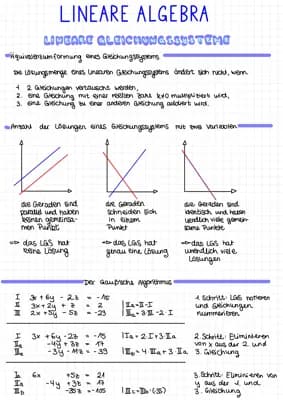 LINEARE ALGEBRA
LINEARE GLEICHUNGSSYSTEME
Äquivalenzumformung eines Gleichungssystems
Die Lösungsmenge eines linearen Gleichungssystems ändert sich nicht, wenn
1. 2 Gleichungen vertauscht werden,
2. eine Gleichung mit einer reellen Zahl k≠0 multipliziert wird,
3. eine Gleichung zu einer anderen Gleichung addiert wird.
Anzahl der Lösungen eines Gleichungssystems mit zwei Variablen
die Geraden sind parallel und haben keinen gemeinsamen Punkt
⇒ das LGS hat keine Lösung
die Geraden schneiden sich in einem Punkt
⇒ das LGS hat genau eine Lösung
die Geraden sind identisch und haben unendlich viele gemeinsame Punkte
⇒ das LGS hat unendlich viele Lösungen
Der Gauß'sche Algorithmus
I 3x + 6y - 2z = -15
II 3x + 2y + z = 2
III 2x + 5y - 5z = -23
1. Schritt: LGS notieren und Gleichungen nummerieren
I 3x + 6y - 2z = -15
2. Schritt: Eliminieren von x aus der 2. und 3. Gleichung
3. Schritt: Eliminieren von y aus der 1. und 3. Gleichung